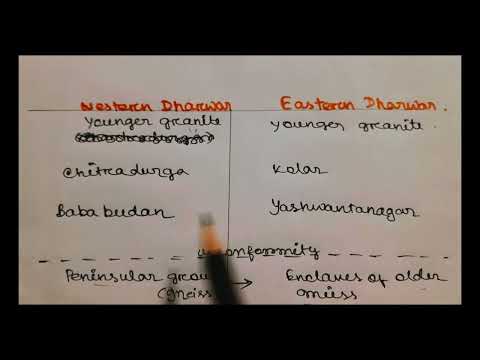 Western Dharwar Eastern Dharwar.
younger granite younger granite.
Chitradurga Kolar
Baba budan Yashwantanagar
unconformity
Peninsular → Enclaves of older
(gneiss gneiss